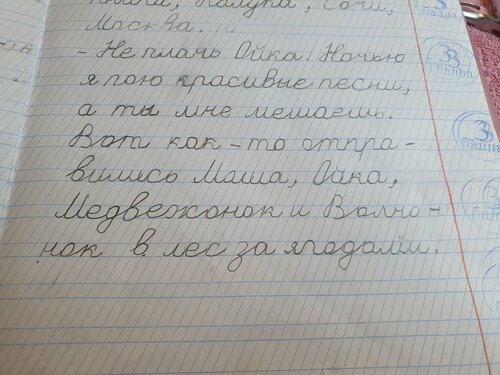 Калуга, Сочи,
Москва.
- Не плачь Ойка! Ночью
я пою красивые песни,
а ты мне мешаешь.
Вот как-то отпра-
вились Маша, Ойка,
Медвежонок и Волчо-
нок в лес за ягодами.